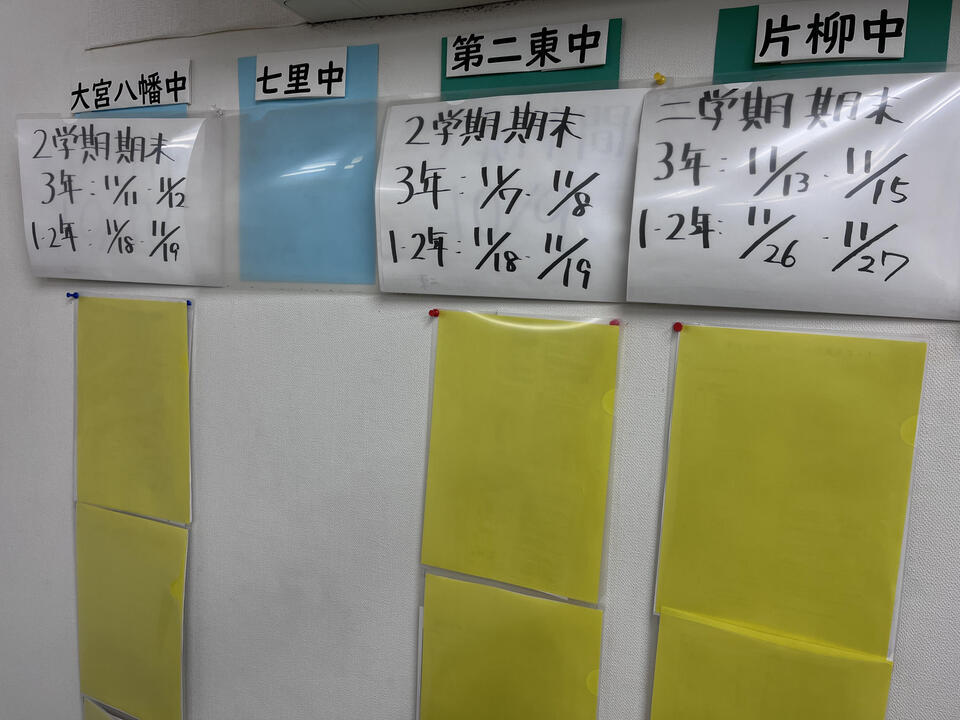 大宮八幡中
2学期期末
3年:11/11・11/12
1・2年:11/18・11/19
七里中
第二東中
2学期期末
3年:11/7・11/8
1・2年:11/18・11/19
片柳中
二学期期末
3年:11/13・11/15
1・2年:11/26・11/27